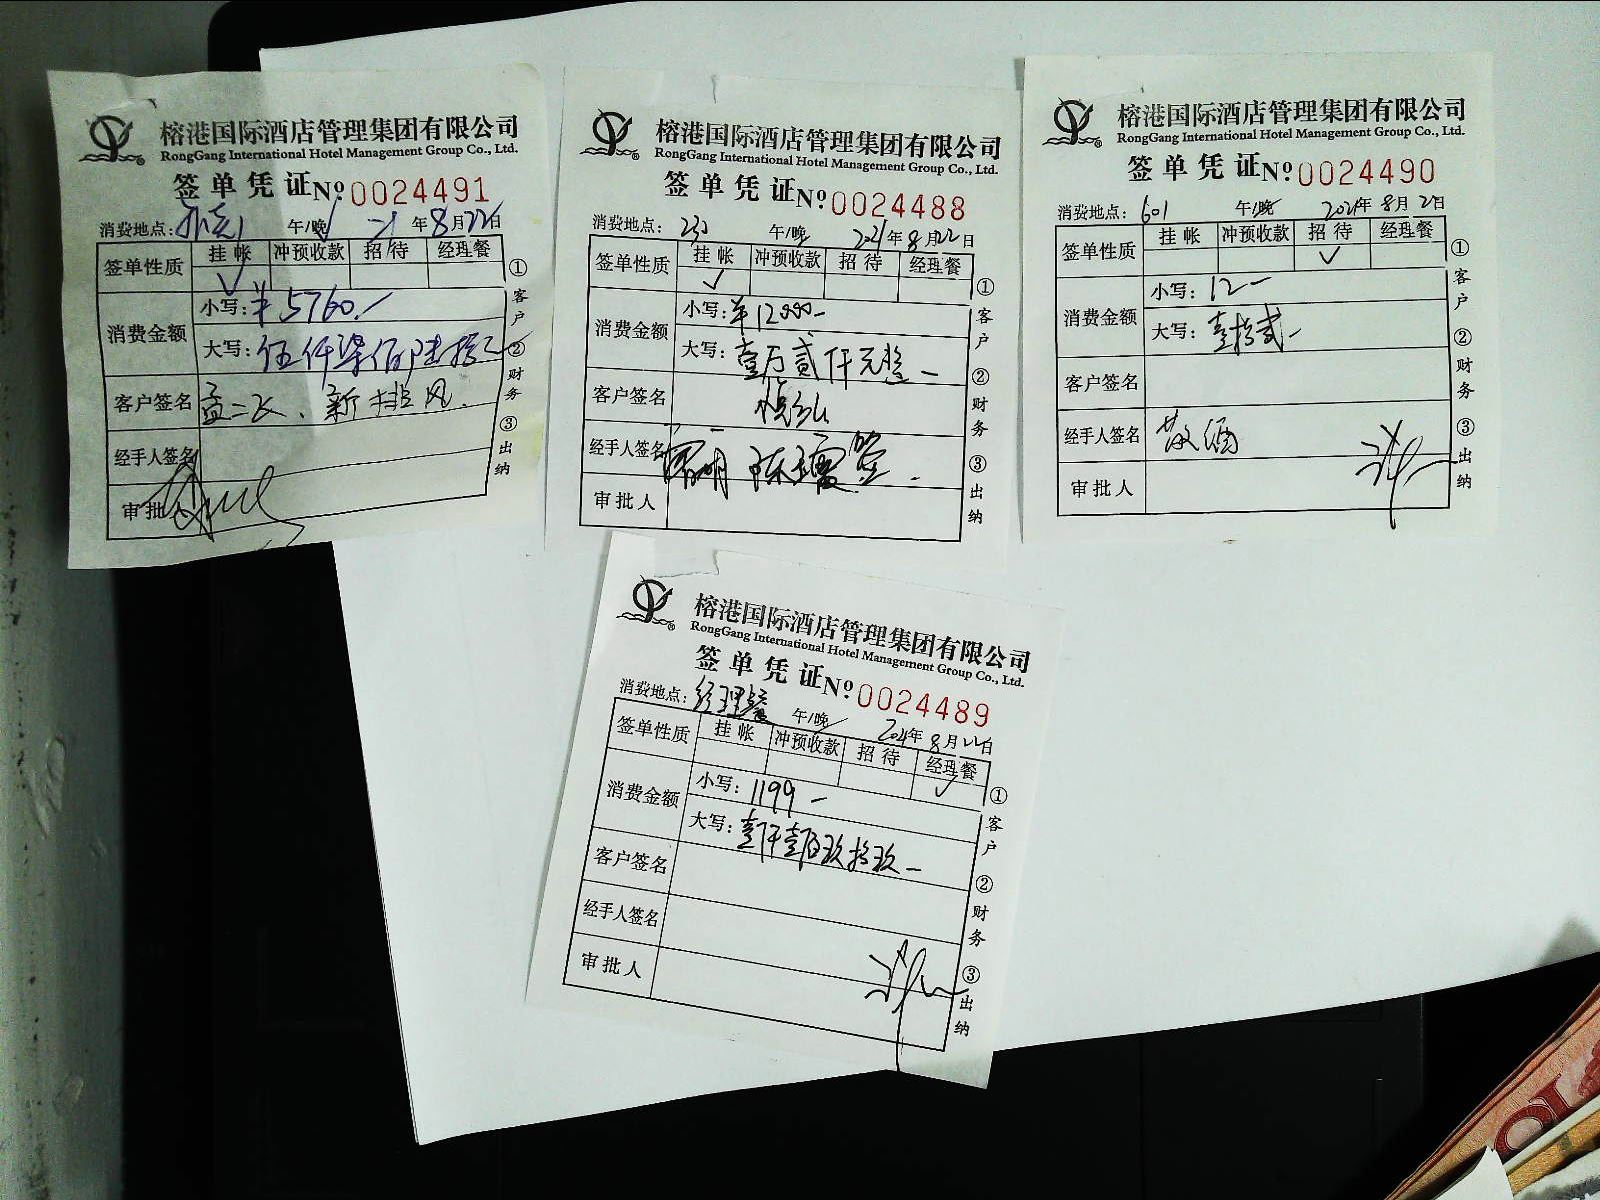 榕港国际酒店管理集团有限公司
RongGang International Hotel Management Group Co., Ltd.
签单凭证 Nº 0024491
消费地点: 午/晚 21年8月22日
签单性质 挂帐 冲预收款 招待 经理餐
✓
消费金额 小写: ¥5760.-
大写: 伍仟柒佰陆拾元
客户签名 孟二飞、新排风.
经手人签名
审批人
①客户 ②财务 ③出纳
榕港国际酒店管理集团有限公司
RongGang International Hotel Management Group Co., Ltd.
签单凭证 Nº 0024488
消费地点: 午/晚 2021年8月22日
签单性质 挂帐 冲预收款 招待 经理餐
✓
消费金额 小写: ¥12000-
大写: 壹万贰仟元整-
客户签名
经手人签名 签.
审批人
①客户 ②财务 ③出纳
榕港国际酒店管理集团有限公司
RongGang International Hotel Management Group Co., Ltd.
签单凭证 Nº 0024490
消费地点: 601 午/晚 2021年8月2日
签单性质 挂帐 冲预收款 招待 经理餐
✓
消费金额 小写: 12-
大写: 壹拾贰-
客户签名
经手人签名 散酒
审批人
①客户 ②财务 ③出纳
榕港国际酒店管理集团有限公司
RongGang International Hotel Management Group Co., Ltd.
签单凭证 Nº 0024489
消费地点: 经理餐 午/晚 2021年8月22日
签单性质 挂帐 冲预收款 招待 经理餐
✓
消费金额 小写: 1199-
大写: 壹仟壹佰玖拾玖-
客户签名
经手人签名
审批人
①客户 ②财务 ③出纳